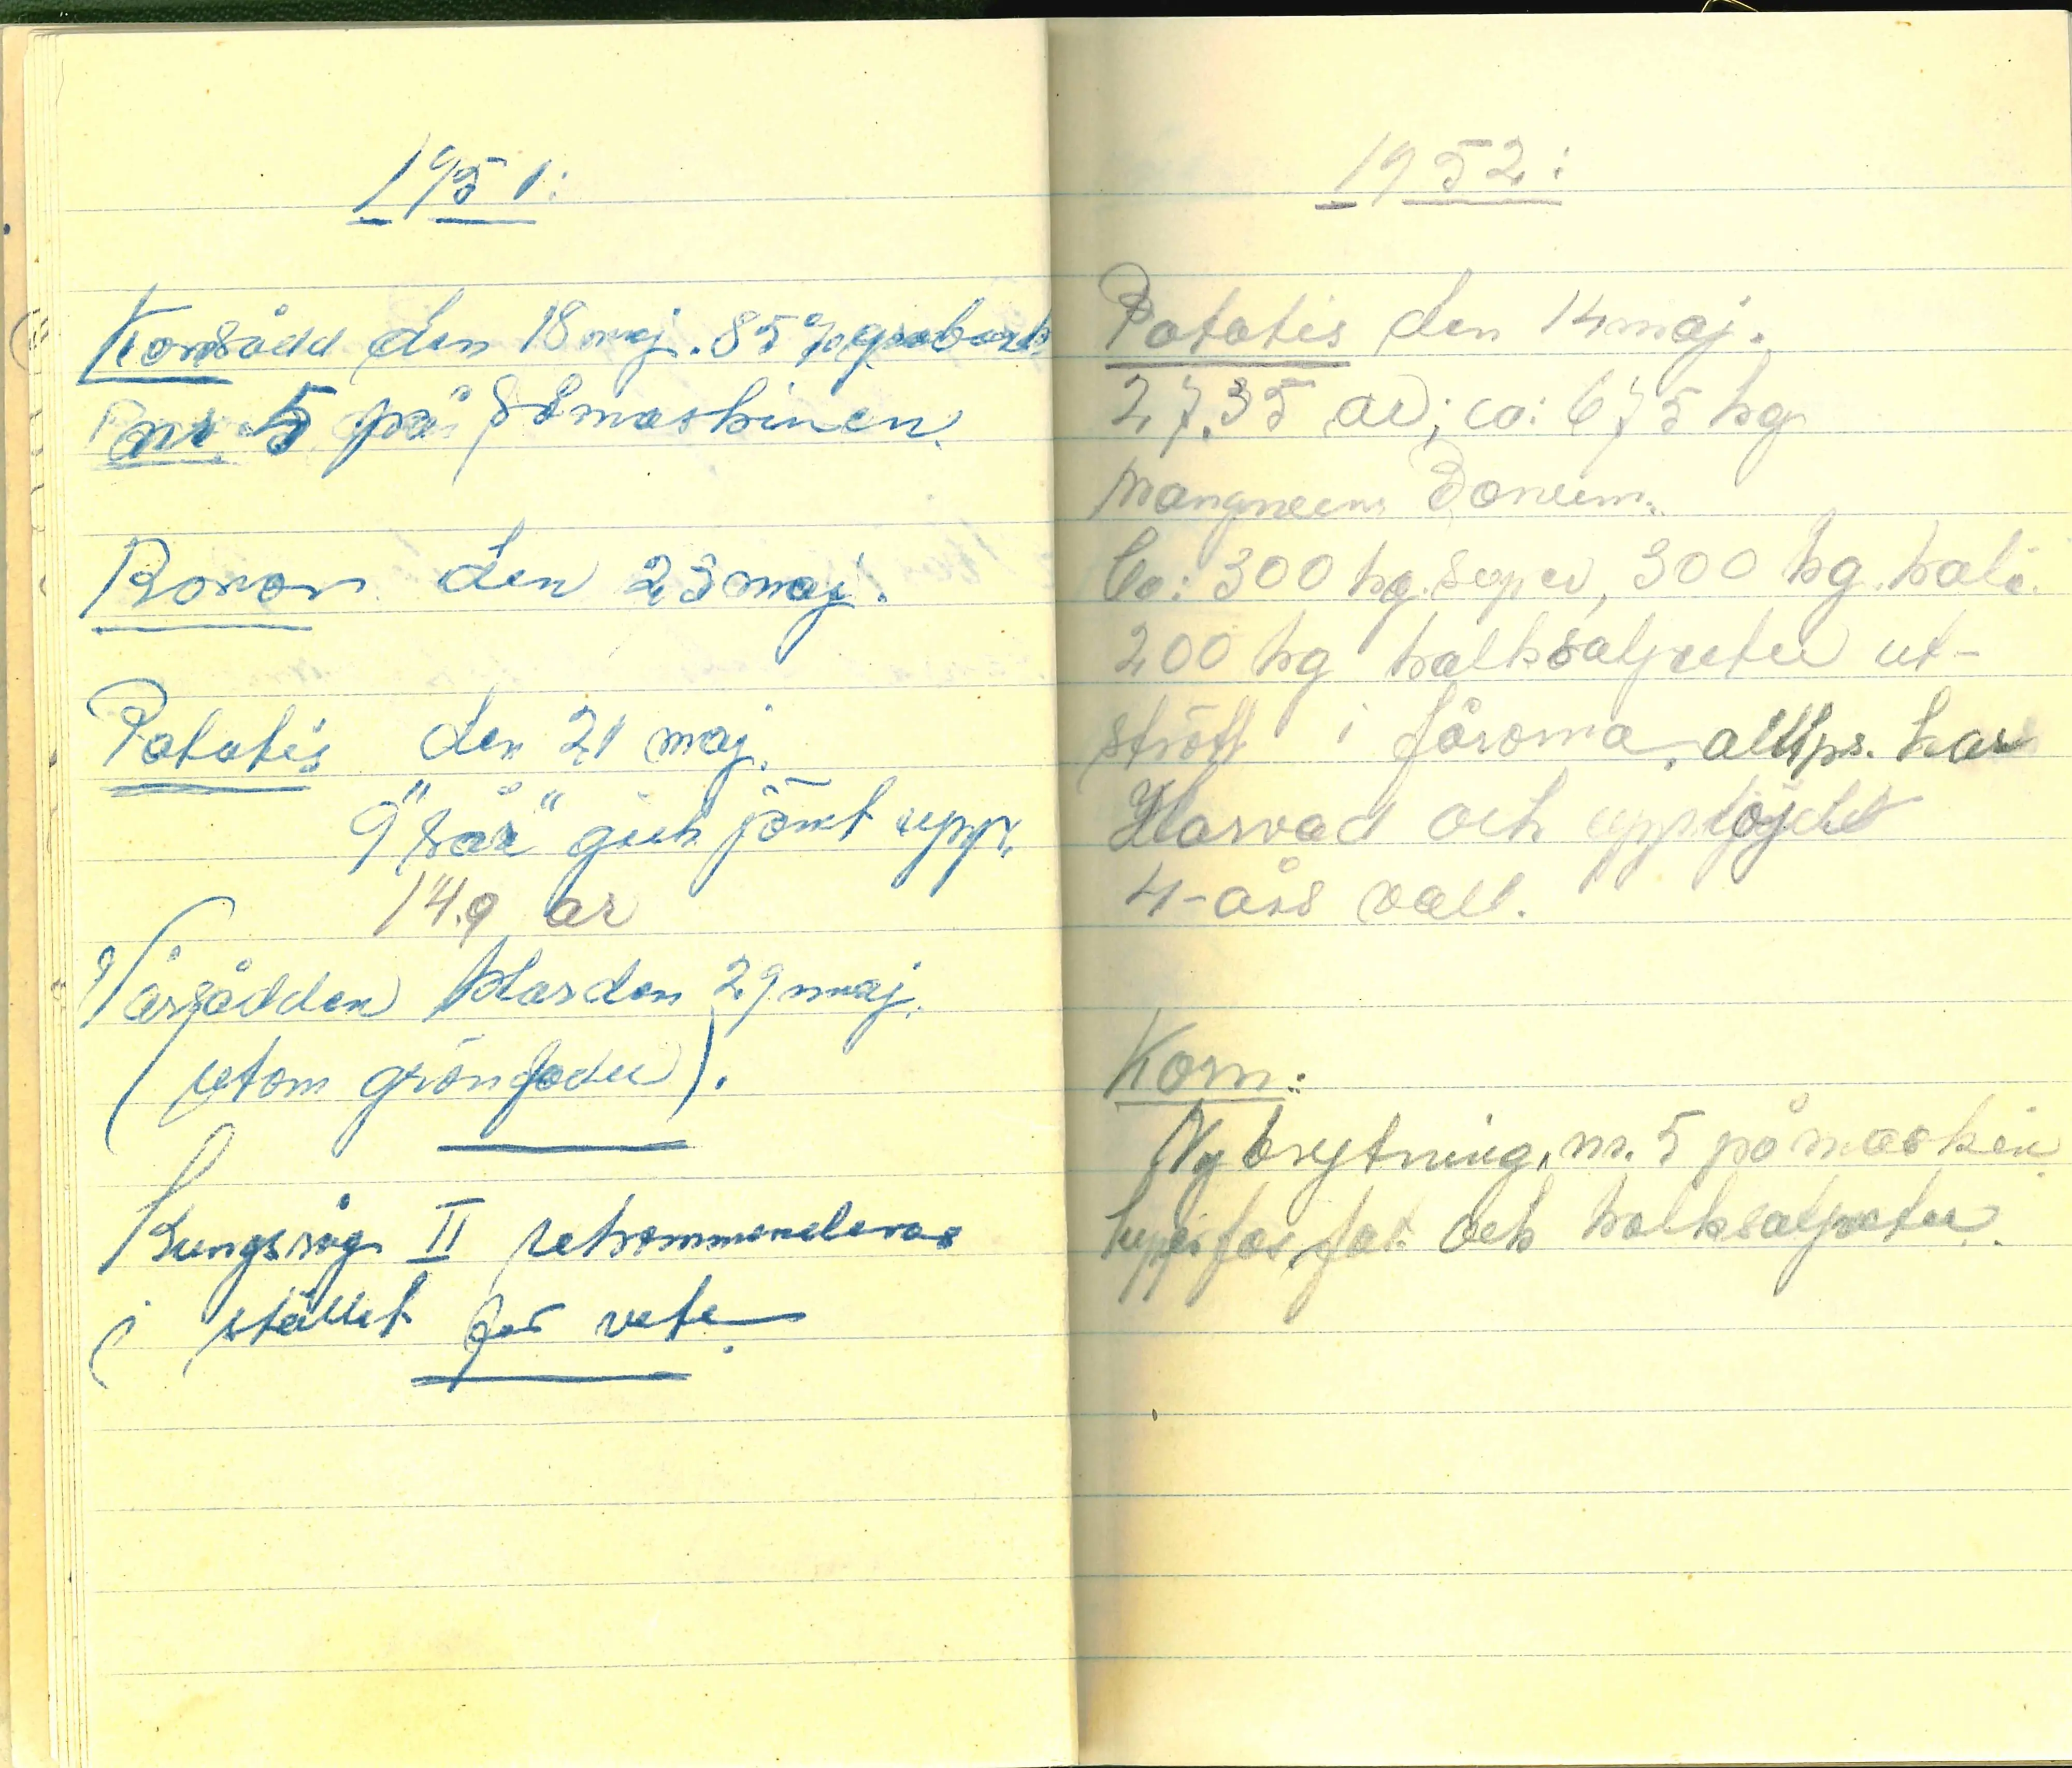 1951:
Kornsådd den 18 maj. 85% grobarh
nr. 5 på Såmaskinen.
den 23 maj.
Potatis den 21 maj.
9 "sår" gick jämt upp.
14.9 ar
Vårsådden klar den 29 maj.
(utom grönfoder).
Kungsråg II rekommenderas
i stället för vete.
1952:
Potatis den 14 maj.
27,35 ar; ca: 675 kg
Bonum.
Ca: 300 kg. super, 300 kg. kali.
200 kg kalksalpeter ut-
strött i fårorna. har
Harvad och upplöjdt
4-års vall.
Korn:
Nybrytning, nr. 5 på maskin
superfosfat och kalksalpeter.